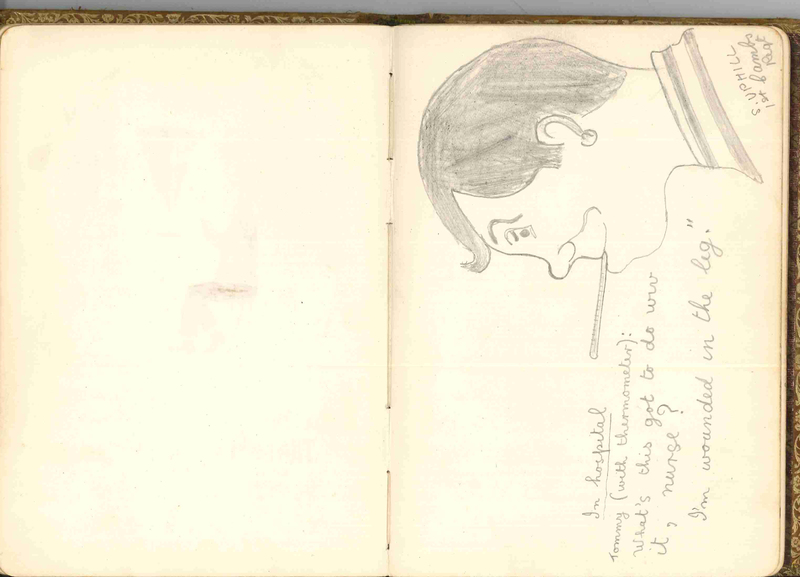 S. UPHILL
1st Cambs
Regt
In hospital
Tommy (with thermometer):
What's this got to do wiv
it, nurse?
I'm wounded in the leg."